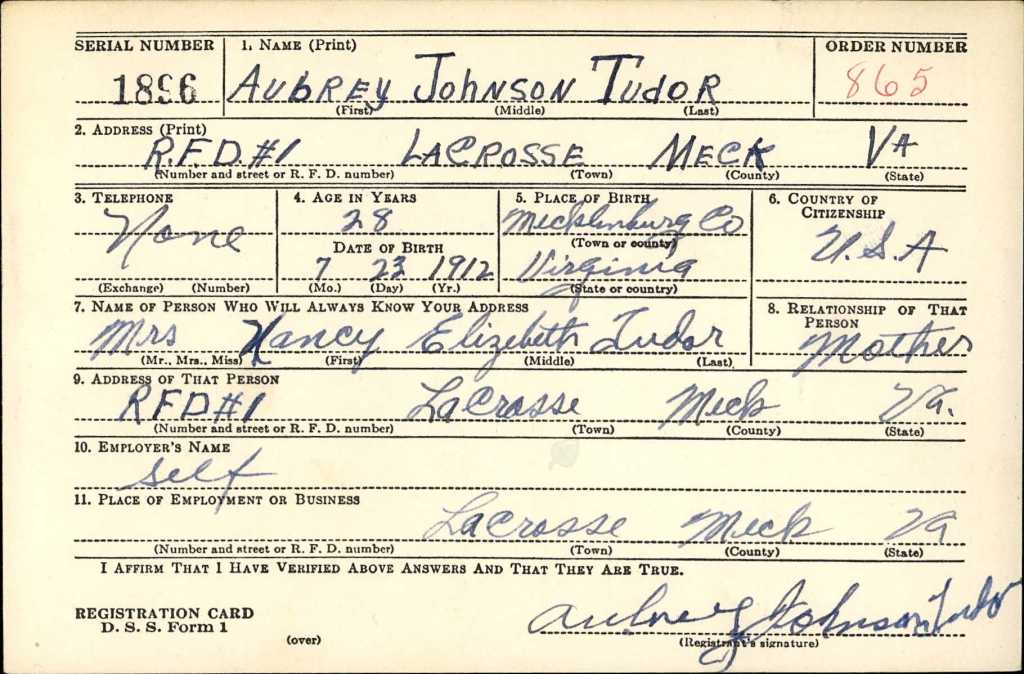 SERIAL NUMBER 1. NAME (Print) ORDER NUMBER
1896 AUBREY JOHNSON TUDOR 865
(First) (Middle) (Last)
2. ADDRESS (Print)
R.F.D. #1 LACROSSE MECK VA
(Number and street or R. F. D. number) (Town) (County) (State)
3. TELEPHONE 4. AGE IN YEARS 5. PLACE OF BIRTH 6. COUNTRY OF CITIZENSHIP
None 28 Mecklenburg Co U.S.A
(Town or county)
DATE OF BIRTH
7 23 1912 Virginia
(Exchange) (Number) (Mo.) (Day) (Yr.) (State or country)
7. NAME OF PERSON WHO WILL ALWAYS KNOW YOUR ADDRESS 8. RELATIONSHIP OF THAT PERSON
Mrs Nancy Elizebeth Tudor Mother
(Mr., Mrs., Miss) (First) (Middle) (Last)
9. ADDRESS OF THAT PERSON
RFD#1 LaCrosse Meck Va.
(Number and street or R. F. D. number) (Town) (County) (State)
10. EMPLOYER'S NAME
self
11. PLACE OF EMPLOYMENT OR BUSINESS
LaCrosse Meck Va
(Number and street or R. F. D. number) (Town) (County) (State)
I AFFIRM THAT I HAVE VERIFIED ABOVE ANSWERS AND THAT THEY ARE TRUE.
REGISTRATION CARD
D. S. S. Form 1
(over)
Aubrey Johnson Tudor
(Registrant's signature)